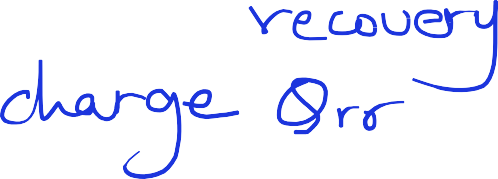 recovery
charge Qrr